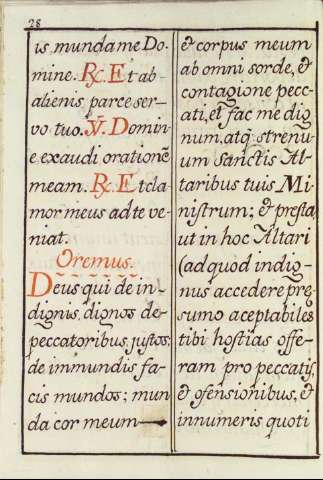 28
is munda me Do-
mine. ℟. Et ab
alienis parce ser-
vo tuo. ℣. Domin
e exaudi orationẽ
meam. ℟. Et cla
mor meus ad te ve
niat.
Oremus.
Deus qui de in-
dignis, dignos de
peccatoribus, justos:
de immundis fa-
cis mundos; mun
da cor meum
& corpus meum
ab omni sorde, &
contagione pecc-
ati, et fac me dig
num, atq; strenu-
um sanctis Al-
taribus tuis Mi-
nistrum; & presta
ut in hoc Altari
(ad quod indig-
nus accedere pre
sumo aceptabiles
tibi hostias offe-
ram pro peccatis,
et ofensionibus, &
innumeris quoti